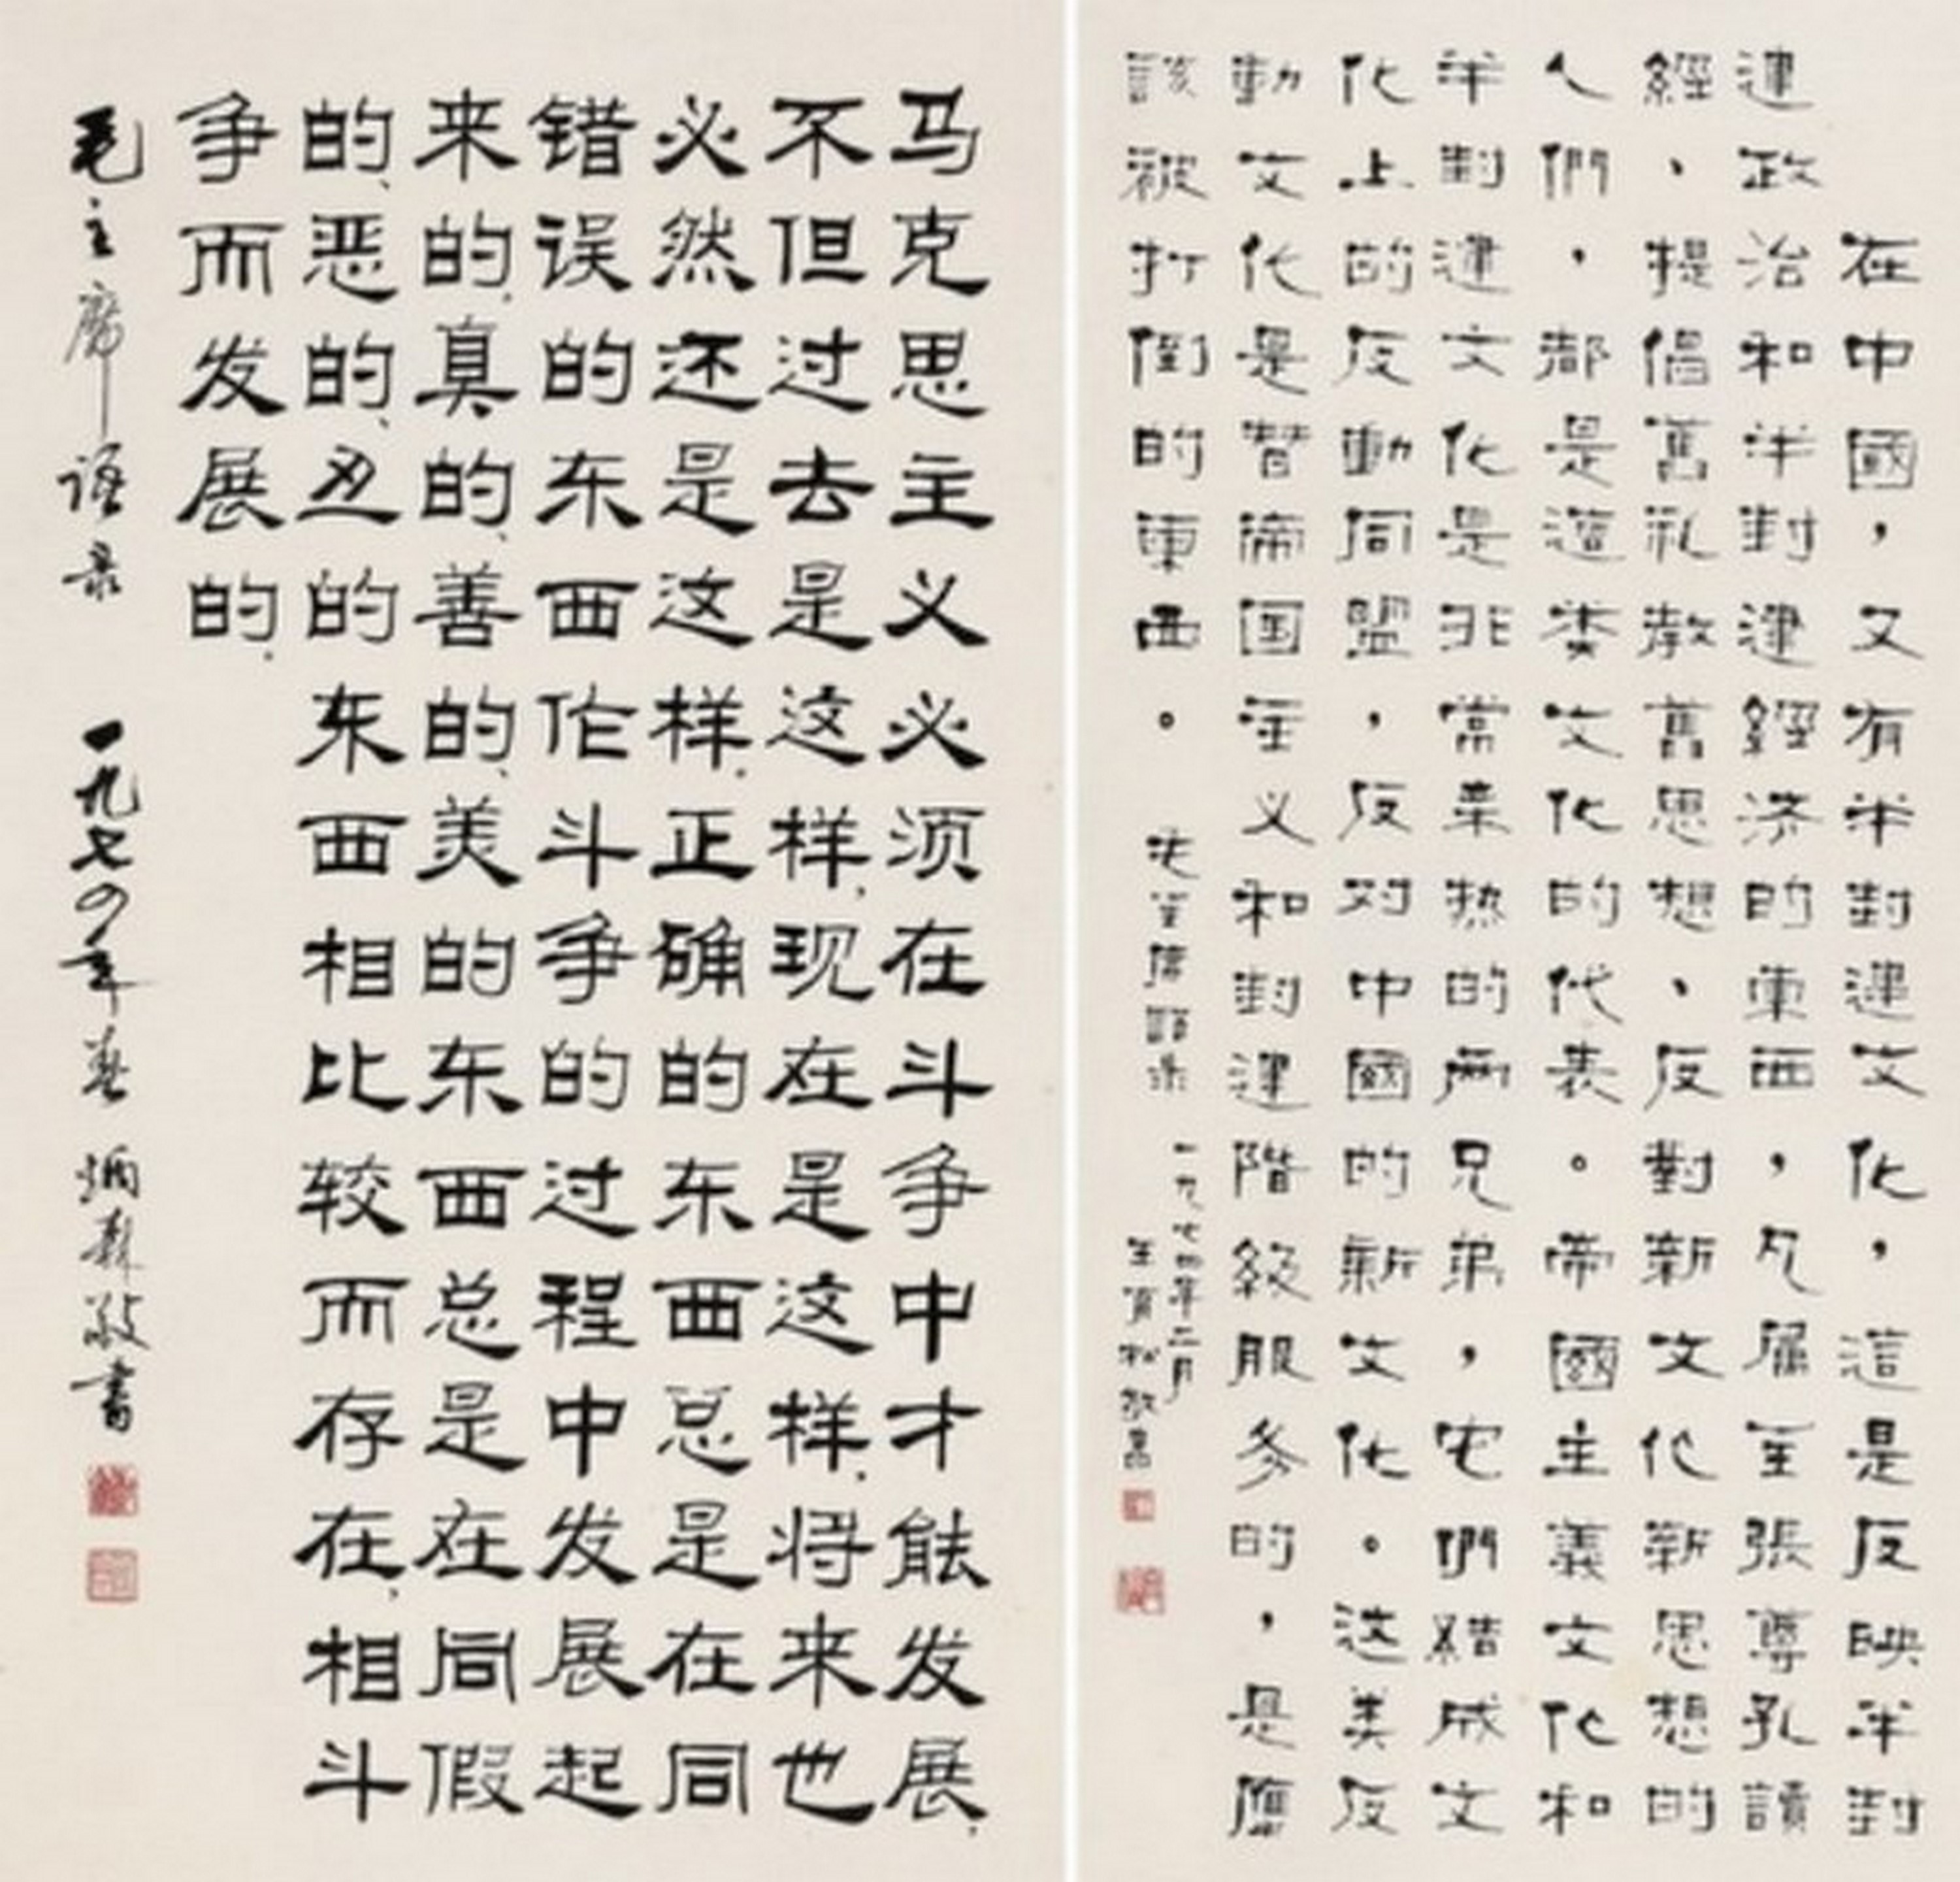 在中國，又有半封建文化，這是反映半封
建政治和半封建經济的東西，凡属主張尊孔讀
經、提倡舊礼教舊思想、反對新文化新思想的
人們，都是這类文化的代表。帝國主義文化和
半封建文化是非常亲热的两兄弟，它們結成文
化上的反動同盟，反对中國的新文化。这类反
動文化是替帝国主义和封建階級服务的，是應
該被打倒的東西。
毛主席語录
一九七四年二月
敬書
马克思主义必须在斗争中才能发展，
不但过去是这样，现在是这样。将来也
必然还是这样。正确的东西总是在同
错误的东西作斗争的过程中发展起
来的。真的、善的、美的东西总是在同假
的、恶的、丑的东西相比较而存在，相斗
争而发展的。
毛主席语录 一九七〇年春 炳森敬書